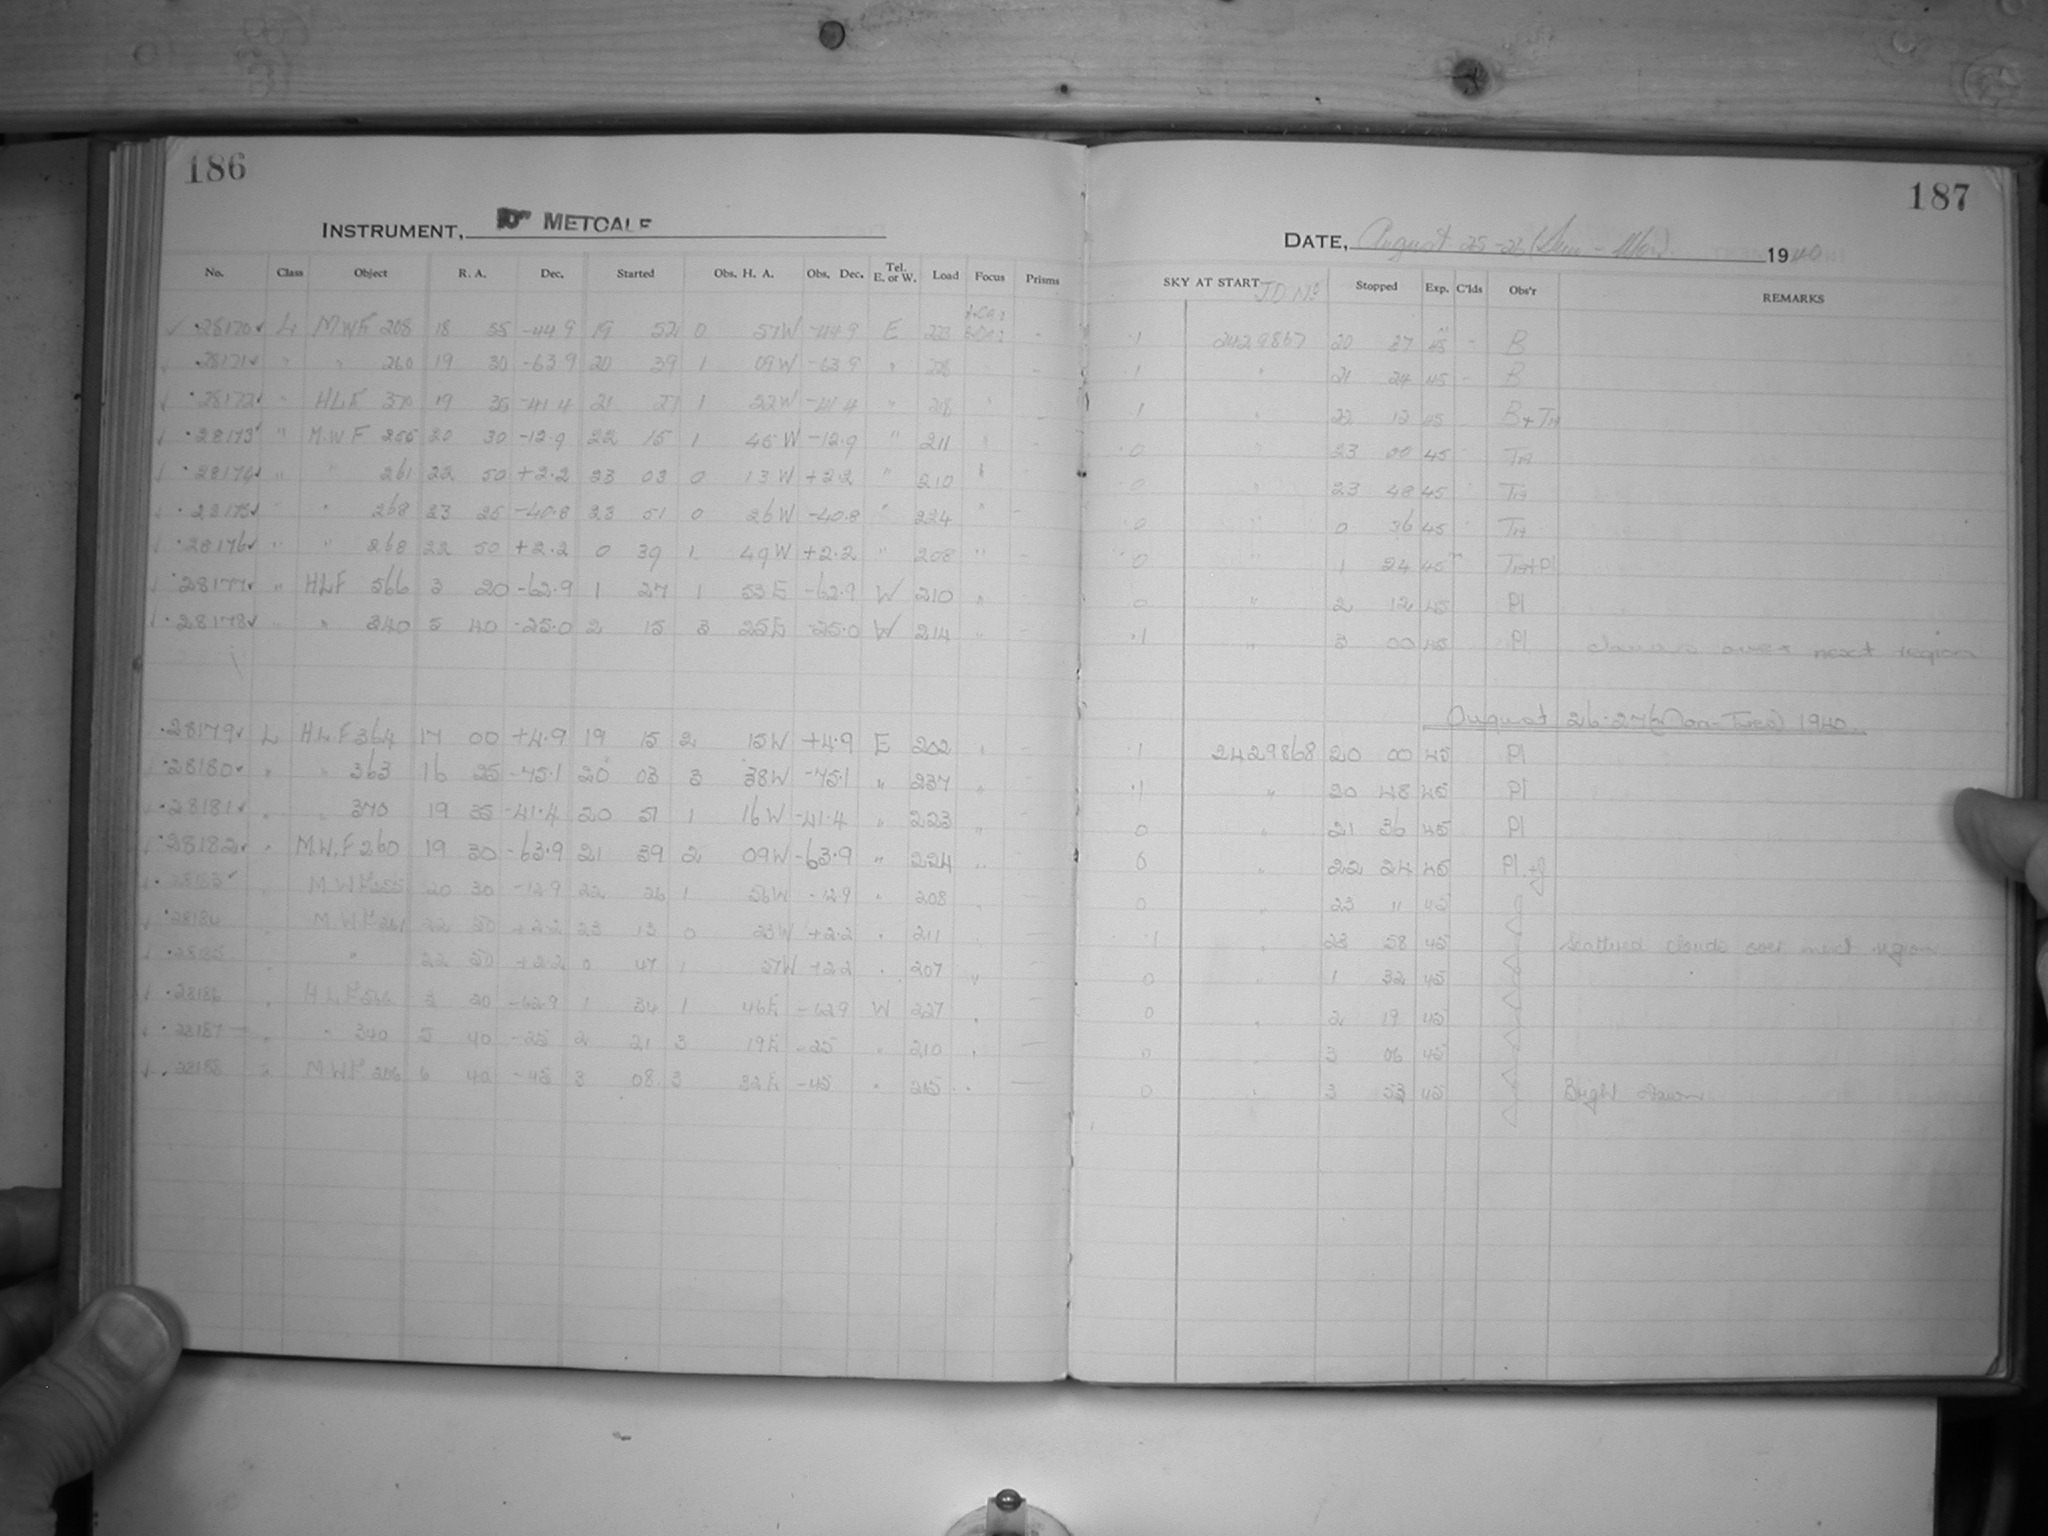 186
INSTRUMENT, 10" METCALF
No. Class Object R. A. Dec. Started Obs. H. A. Obs. Dec. Tel. E. or W. Load Focus Prisms
28170 L MWF 208 18 55 -44.9 19 52 0 57W -44.9 E 223
28171 " " 260 19 30 -63.9 20 39 1 09W -63.9 "
28172 " HLF 370 19 35 -41.4 21 27 1 22W -41.4 " 218 "
28173 " M.W.F 255 20 30 -12.9 22 15 1 45W -12.9 " 211 "
28174 " " 261 22 50 +2.2 23 03 0 13W +2.2 " 210 "
28175 " " 268 23 25 -40.8 23 51 0 26W -40.8 " 224 "
28176 " " 268 22 50 +2.2 0 39 1 49W +2.2 " 208 "
28177 " HLF 566 3 20 -62.9 1 27 1 53E -62.9 W 210 "
28178 " " 340 5 40 -25.0 2 15 3 25E -25.0 W 214 "
28179 L H.L.F 364 17 00 +4.9 19 15 2 15W +4.9 E 202 "
28180 " " 363 16 25 -75.1 20 03 3 38W -75.1 " 237 "
28181 " " 370 19 35 -41.4 20 51 1 16W -41.4 " 223 "
28182 " M.W.F 260 19 30 -63.9 21 39 2 09W -63.9 " 224 "
28183 " M W F 255 20 30 -12.9 22 26 1 56W -12.9 " 208 "
28184 " M W F 261 22 50 +2.2 23 13 0 23W +2.2 " 211 "
28185 " " 22 50 +2.2 0 47 1 57W +2.2 " 207 "
28186 " H L F 566 3 20 -62.9 1 34 1 46E -62.9 W 227 "
28187 " " 340 5 40 -25 2 21 3 19E -25 " 210 "
28188 " M W F 206 6 40 -45 3 08 3 32E -45 " 215 "
187
DATE, August 25-26 (Sun-Mon). 1940
SKY AT START JD No. Stopped Exp. C'lds Obs'r REMARKS
.1 2429867 20 37 45 - B
.1 " 21 24 45 - B
1 " 22 12 45 B+TH
0 " 23 00 45 TH
0 " 23 48 45 TH
0 " 0 36 45 TH
0 " 1 24 45 TH+Pl
0 " 2 12 45 Pl
.1 " 3 00 45 Pl over next region
August 26-27 (Mon-Tues) 1940.
.1 2429868 20 00 45 Pl
.1 " 20 48 45 Pl
0 " 21 36 45 Pl
0 " 22 24 45 Pl.
0 " 23 11 45
.1 " 23 58 45 Scattered clouds over next region
0 " 1 32 45
0 " 2 19 45
0 " 3 06 45
0 " 3 53 45 Bright dawn